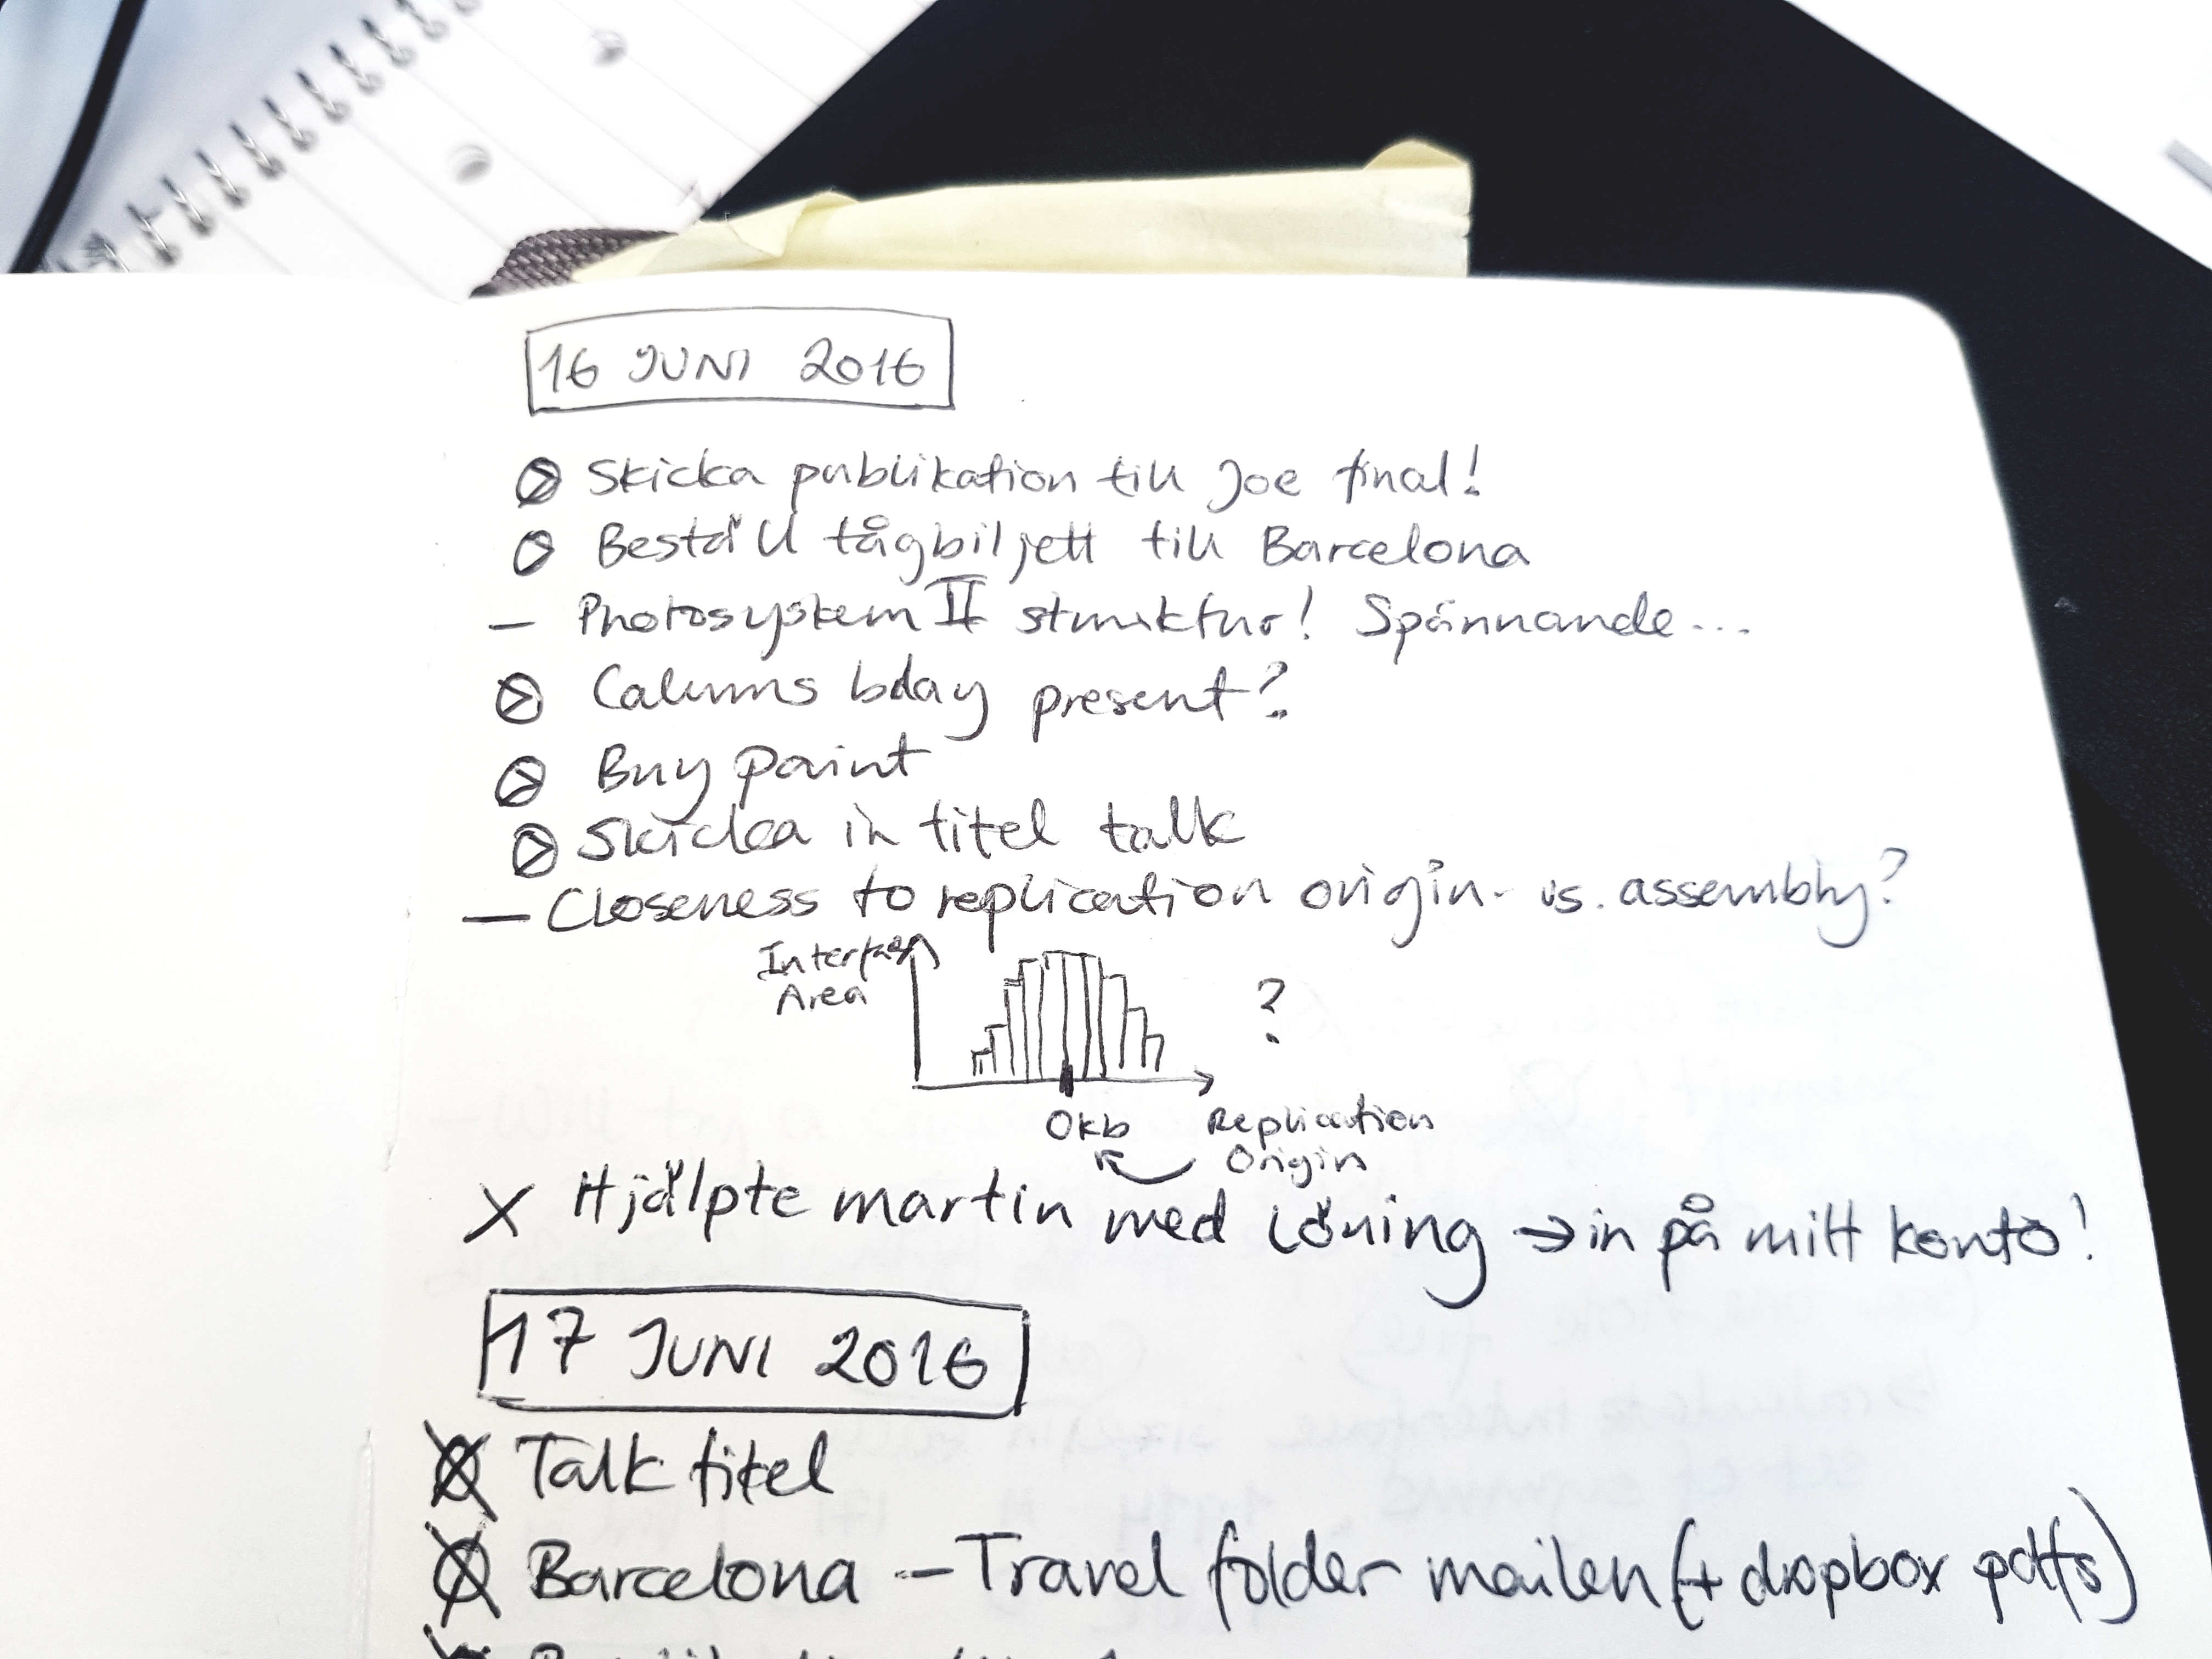 16 JUNI 2016
Skicka publikation till Joe final!
Beställ tågbiljett till Barcelona
– Photosystem II struktur! Spännande...
Calums bday present?
Buy paint
Skicka in titel talk
— Closeness to replication origin vs. assembly?
Interface
Area
?
0kb
Replication
Origin
X Hjälpte martin med löning → in på mitt konto!
17 JUNI 2016
Talk titel
Barcelona – Travel folder mailen (+ dropbox pdfs)